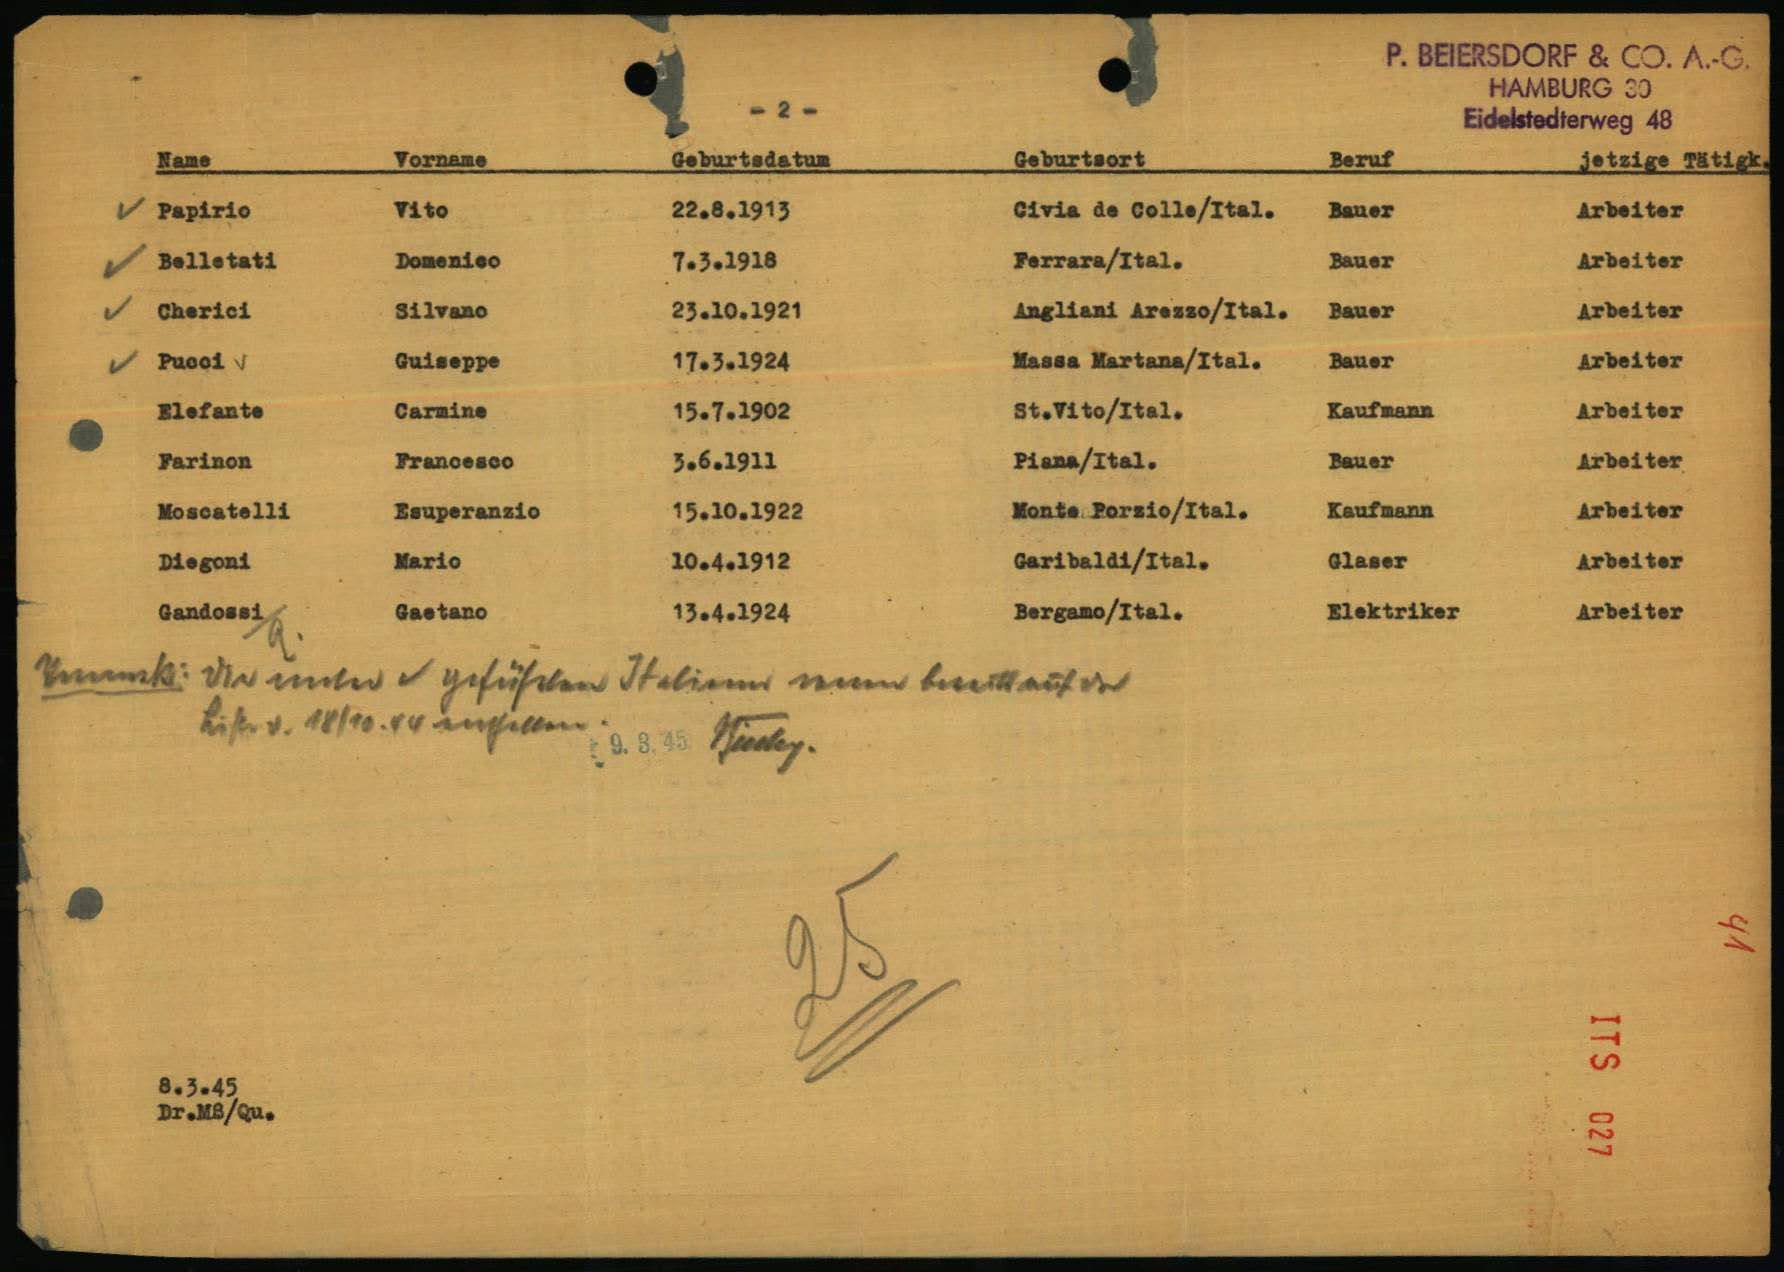 P. BEIERSDORF & CO. A.-G.
HAMBURG 30
Eidelstedterweg 48
- 2 -
Name Vorname Geburtsdatum Geburtsort Beruf jetzige Tätigk.
✓ Papirio Vito 22.8.1913 Civia de Colle/Ital. Bauer Arbeiter
✓ Belletati Domenico 7.3.1918 Ferrara/Ital. Bauer Arbeiter
✓ Cherici Silvano 23.10.1921 Angliani Arezzo/Ital. Bauer Arbeiter
✓ Pucci v Guiseppe 17.3.1924 Massa Martana/Ital. Bauer Arbeiter
Elefante Carmine 15.7.1902 St.Vito/Ital. Kaufmann Arbeiter
Farinon Francesco 3.6.1911 Piana/Ital. Bauer Arbeiter
Moscatelli Esuperanzio 15.10.1922 Monte Porzio/Ital. Kaufmann Arbeiter
Diegoni Mario 10.4.1912 Garibaldi/Ital. Glaser Arbeiter
Gandossi Gaetano 13.4.1924 Bergamo/Ital. Elektriker Arbeiter
Vermerk: Die unter ✓ geführten Italiener waren bereits auf der
Liste v. 18/10.44 enthalten.
9. 3. 45
25
41
ITS 027
8.3.45
Dr.MB/Qu.